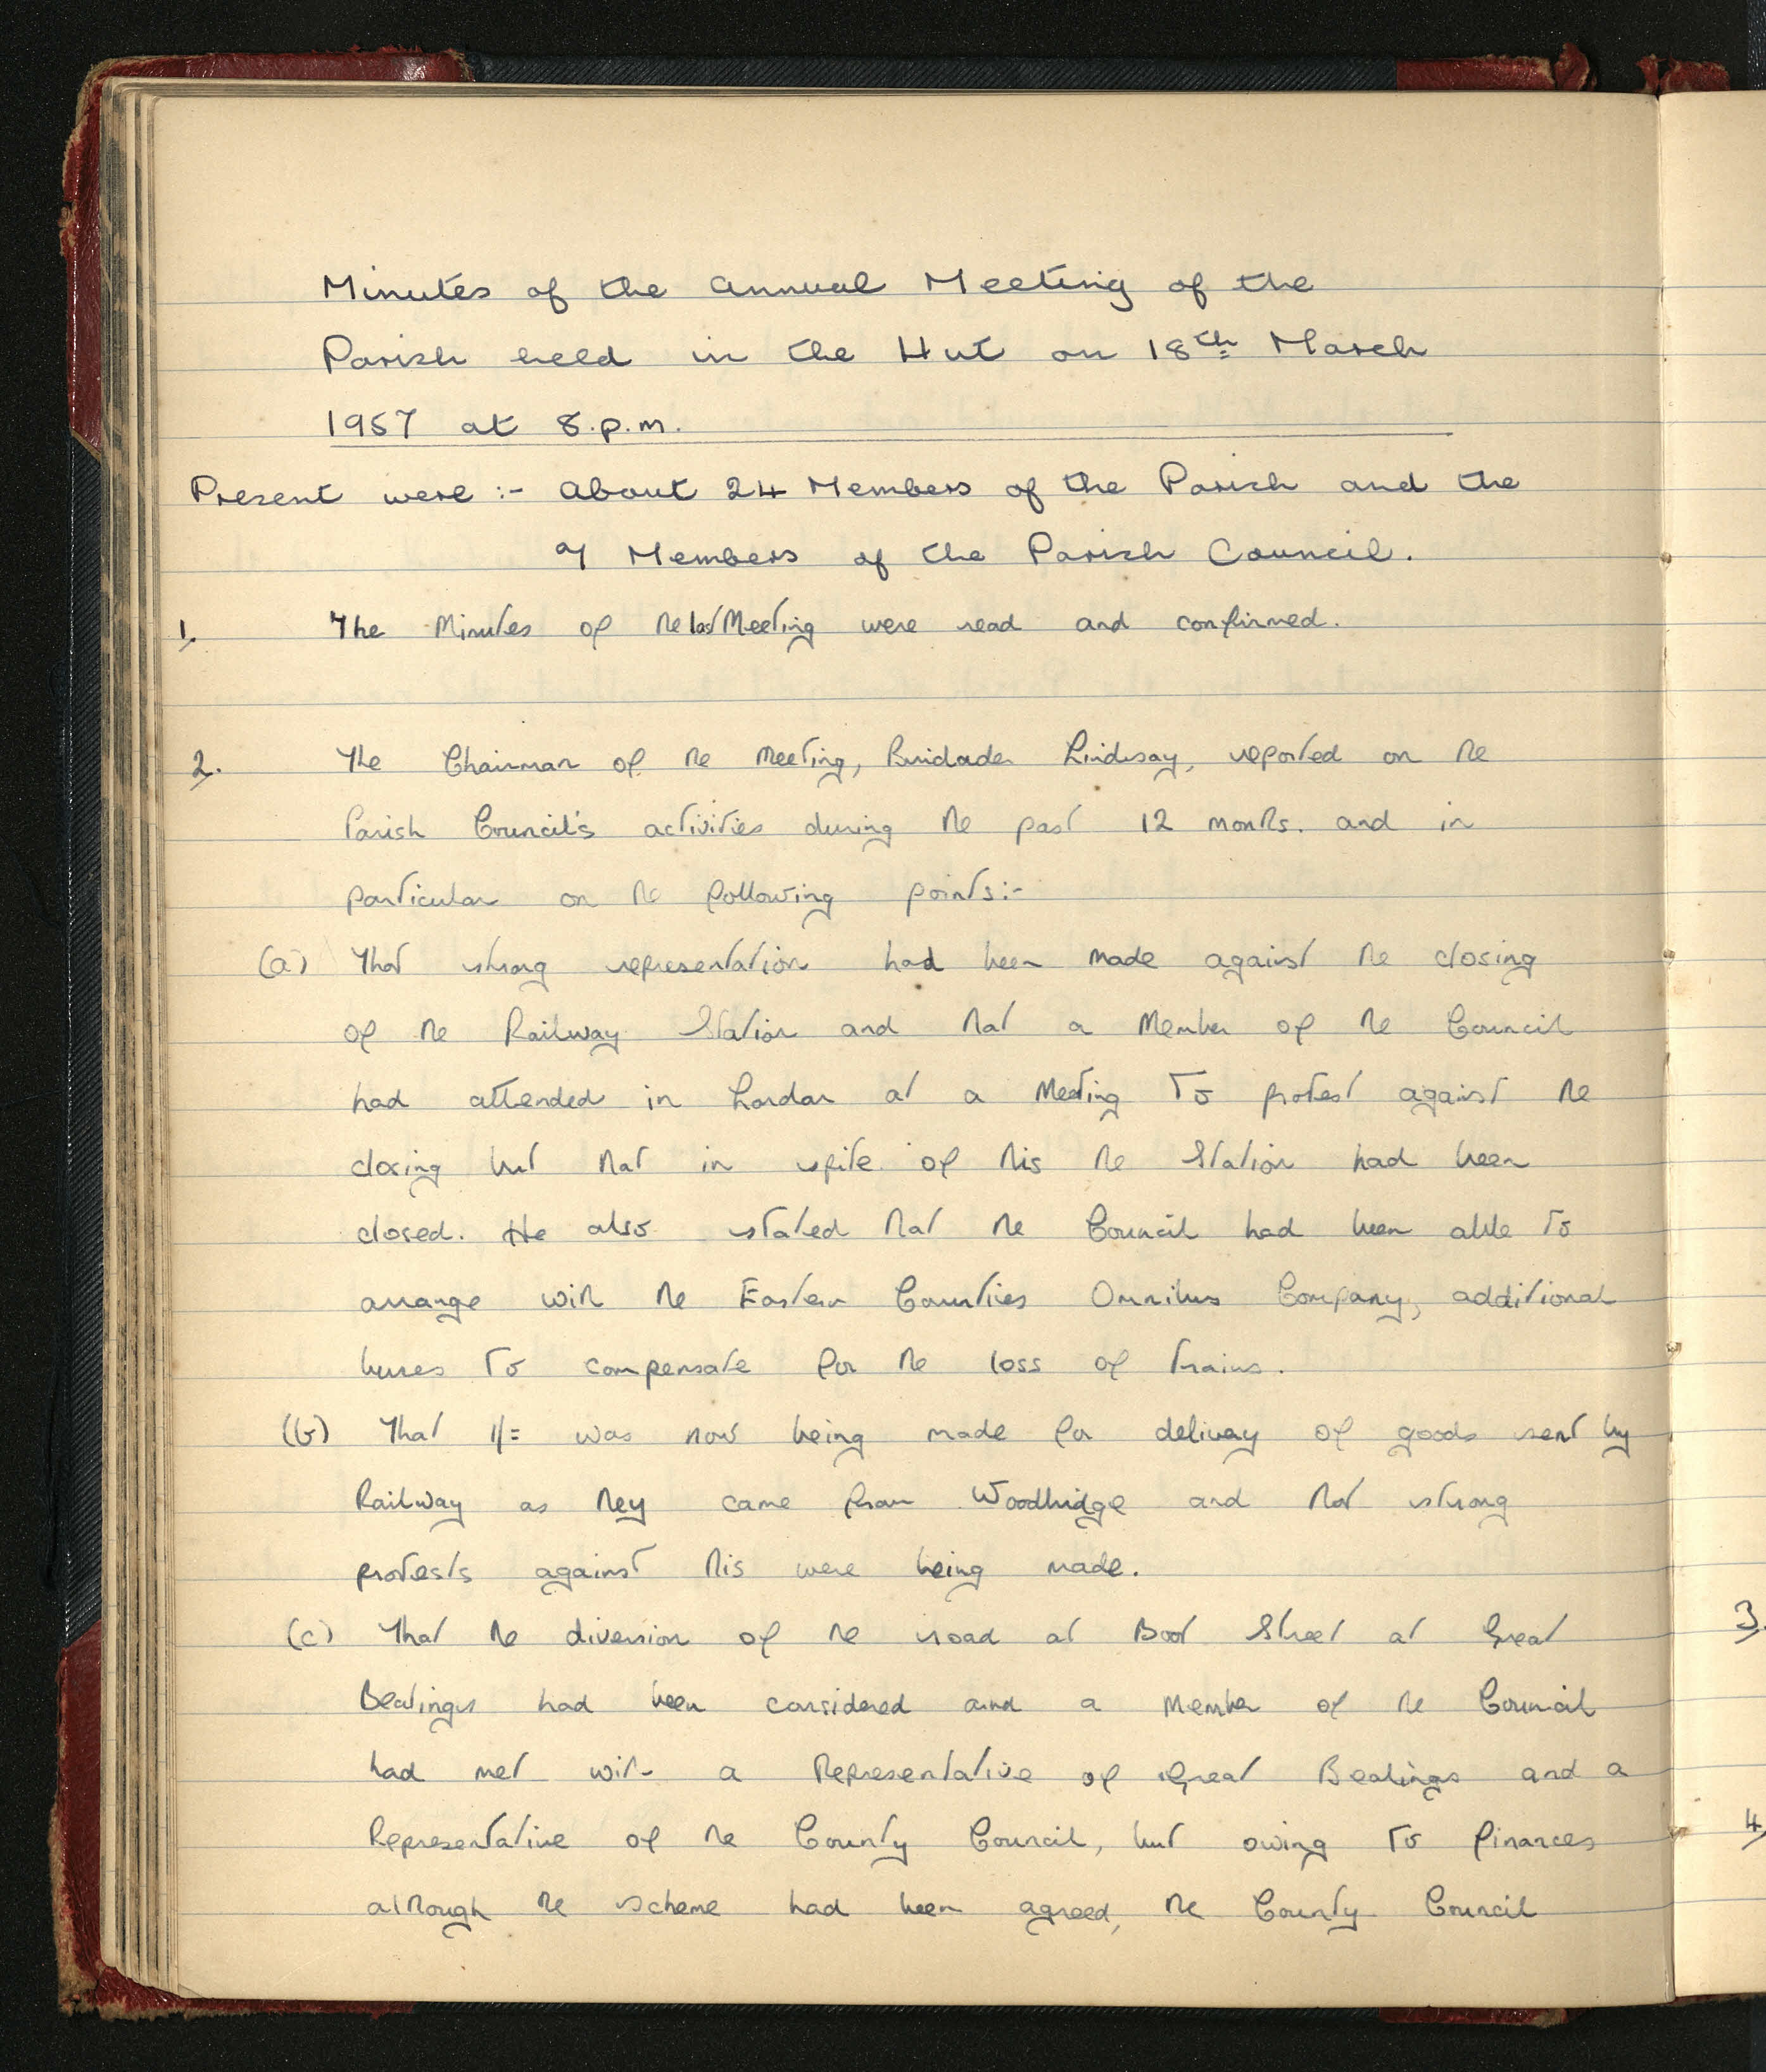 Minutes of the Annual Meeting of the
Parish held in the Hut on 18th March
1957 at 8.p.m.
Present were :- About 24 Members of the Parish and the
7 Members of the Parish Council.
1. The Minutes of the last Meeting were read and confirmed.
2. The Chairman of the Meeting, Lindsay, reported on the
Parish Council's activities during the past 12 months. and in
particular on the following points:-
(a) That strong representation had been made against the closing
of the Railway Station and that a Member of the Council
had attended in London at a Meeting to protest against the
closing but that in spite of this the Station had been
closed. He also stated that the Council had been able to
arrange with the Eastern Counties Omnibus Company, additional
buses to compensate for the loss of trains.
(b) That 1/= was now being made for delivery of goods sent by
Railway as they came from Woodbridge and that strong
protests against this were being made.
(c) That the diversion of the road at Boot Street at Great
Bealings had been considered and a Member of the Council
had met with a Representative of Great Bealings and a
Representative of the County Council, but owing to finances
although the scheme had been agreed, the County Council
3.
4.